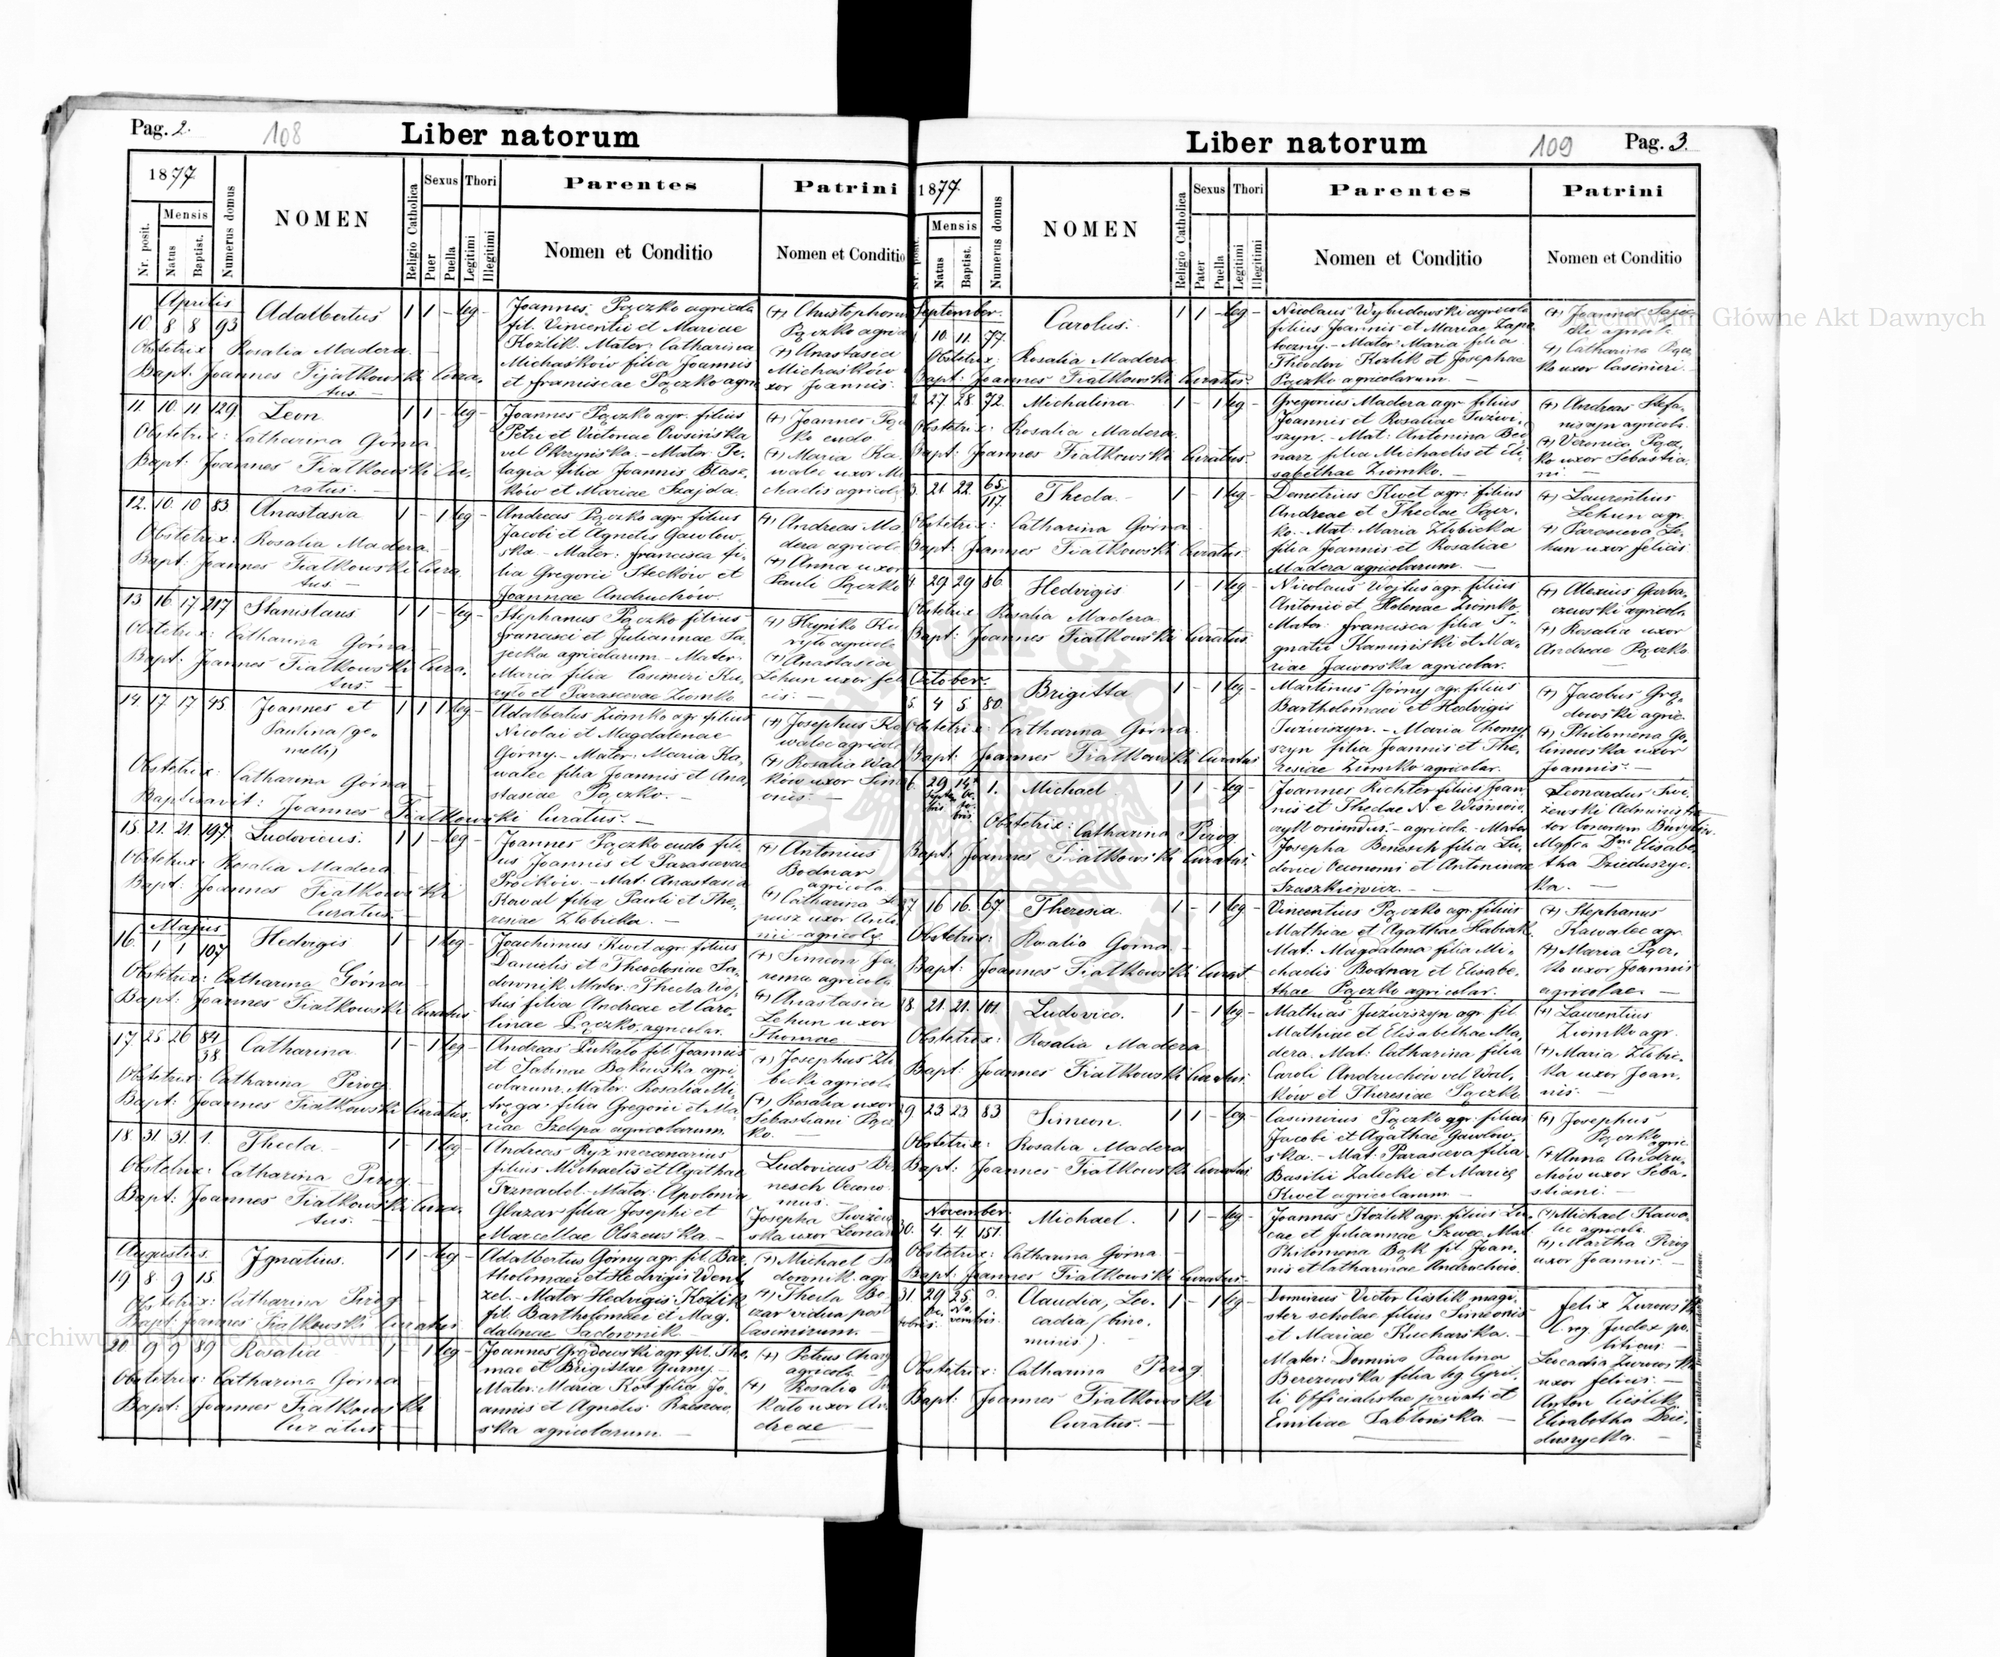 Pag. 2.
108
Liber natorum
1877
Mensis
Nr. posit.
Natus
Baptist.
Numerus domus
NOMEN
Religio Catholica
Sexus
Puer
Puella
Thori
Legitimi
Illegitimi
Parentes
Nomen et Conditio
Patrini
Nomen et Conditio
Aprilis
10 8 8 93 Adalbertus 1 1 - leg -
Obstetrix Rosalia Madera
Bapt: Joannes Fijatkowski Cura-
tus. -
Joannes Pączko agricola
fil. Vincentii et Mariae
Kozlik. Mater: Catharina
Michasków filia Joannis
et Franciscae Pączko agric
(+) Christophorus
Pączko agrico
+) Anastasia
Michasków
xor Joannis.
11. 10. 11. 129. Leon 1 1 - leg -
Obstetrix: Catharina Górna
Bapt: Joannes Fiatkowski Cu-
ratus. -
Joannes Pączko agr. filius
Petri et Victoriae
vel - Mater Pe-
lagia filia Joannis Blase-
ków et Mariae Szajda.
(+) Joannes Pącz
ko eudo
(+) Maria Ka-
walec uxor Mi
chaelis agricol
12. 10. 10 83 Anastasia 1 - 1 leg -
Obstetrix: Rosalia Madera. -
Bapt: Joannes Fiatkowski Cura-
tus. -
Andreas Pączko agr. filius
Jacobi et Agnetis Gawlow-
ska - Mater: Francisca fi-
lia Gregorii Steckow et
Joannae Andruchow.
(+) Andreas Ma
dera agricola
(+) Anna uxor
Pauli Pączko
13 16 17 217 Stanislaus 1 1 - leg -
Obstetrix: Catharina Górna
Bapt: Joannes Fiatkowski Cura-
tus. -
Stephanus Pączko filius
Francisci et Juliannae Sa-
jecka agricolarum - Mater:
Maria filia Casimiri Ku-
ryło et Parascevae Ziomko.
(+) Hryńko Ku
ryło agricola
(+) Anastasia
Lehun uxor fel
cis. -
14 17 17 45 Joannes et 1 1 1 leg -
Paulina (ge-
melli)
Obstetrix: Catharina Górna
Baptisavit: Joannes Fiatkowski Curatus. -
Adalbertus Ziomko agr. filius
Nicolai et Magdalenae
Górny. - Mater: Maria Ka-
walec filia Joannis et Ana-
stasiae Pączko. -
(+) Josephus Ka
walec agricola
(+) Rosalia Wal
ków uxor Sime
onis -
15 21. 21. 197 Ludovicus. 1 1 - leg -
Obstetrix Rosalia Madera
Bapt: Joannes Fiatkowski
Curatus. -
Joannes Pączko eudo fili-
us Joannis et Parascevae
Procików. - Mat: Anastasia
Kaval filia Pauli et The-
resiae Zlobicka. -
(+) Antonius
Bodnar
agricola
(+) Catharina
uxor Anto
nii agricolae
Majus
16. 1 1 107 Hedvigis 1 - 1 leg -
Obstetrix: Catharina Górna
Bapt: Joannes Fiatkowski Curatus
Joachimus Kwet agr. filius
Danielis et Theodosiae Sa-
downik Mater: Thecla Woj-
tus filia Andreae et Caro-
linae Pączko agricolar.
(+) Simeon Ja
rema agricola
(+) Anastasia
Lehun uxor
Thomae -
17 25 26 84/38 Catharina 1 - 1 leg -
Obstetrix: Catharina Pirog
Bapt: Joannes Fiatkowski Curatus.
Andreas Pukało fil: Joannis
et Sabinae Bąkowska agri-
colarum. Mater: Rosalia Mi-
tręga filia Gregorii et Ma-
riae Szelpa agricolarum.
(+) Josephus Zło
bicki agricola
(+) Rosalia uxor
Sebastiani Pącz
ko. -
18. 31. 31. 1. Thecla. - 1 - 1 leg -
Obstetrix: Catharina Pirog -
Bapt: Joannes Fiatkowski Cura-
tus. -
Andreas Ryz mercenarius
filius Michaelis et Agathae
Trznadel. Mater: Apolonia
Glazar filia Josephi et
Marcellae Olszewska. -
Ludovicus Be
nesch Oecono
mus. -
Josepha
ska uxor Leonar
Augustus.
19 8 9 15 Ignatius. 1 1 - leg -
Obstetrix: Catharina Pirog
Bapt: Joannes Fiatkowski Curatus
Adalbertus Górny agr. fil. Bar-
tholomaei et Hedvigis Went-
zel. - Mater Hedvigis Kozlik
fil. Bartholomaei et Mag-
dalenae Sadownik -
(+) Michael Sa
downik agr
(+) Thecla
vidua post
Casimirum. -
20 9 9 89 Rosalia 1 - 1 leg -
Obstetrix: Catharina Górna
Bapt: Joannes Fiatkowski
Curatus. -
Joannes Grądowski agr. fil. Tho-
mae et Brigittae Gurny. -
Mater: Maria Kot filia Jo-
annis et Agnetis Rzeszow-
ska agricolarum -
(+) Petrus
agricola
(+) Rosalia
uxor An
dreae -
Liber natorum
109
Pag. 3.
1877
Mensis
Nr. posit.
Natus
Baptist.
Numerus domus
NOMEN
Religio Catholica
Sexus
Pater
Puella
Thori
Legitimi
Illegitimi
Parentes
Nomen et Conditio
Patrini
Nomen et Conditio
September.
10. 11. 77. Carolus. 1 1 - leg -
Obstetrix: Rosalia Madera
Bapt: Joannes Fiatkowski Curatus. -
Nicolaus Wybudowski agricola
filius Joannis et Mariae
- Mater Maria filia
Theodori Kozlik et Josephae
Pączko agricolarum. -
(+) Joannes
agricola.
+) Catharina Pącz-
ko uxor Casimiri. -
27 28 72. Michalina 1 - 1 leg -
Obstetrix: Rosalia Madera.
Bapt: Joannes Fiatkowski Curatus.
Gregorius Madera agr filius
Joannis et Rosaliae Juźwi-
szyn. - Mat: Antonina Bed-
narz filia Michaelis et Eli-
sabethae Ziomko. -
(+) Andreas Stefa-
niszyn agricola.
(+) Veronica Pącz-
ko uxor Sebastia-
ni. -
3. 21. 22. 65/117. Thecla. - 1 - 1 leg -
Obstetrix: Catharina Górna
Bapt: Joannes Fiatkowski Curatus.
Demetrius Kwet agr. filius
Andreae et Theclae Pącz-
ko. - Mat: Maria Złobicka
filia Joannis et Rosaliae
Madera agricolarum. -
(+) Laurentius
Lehun agr.
+) Parasceva Le-
hun uxor Felicis
4. 29. 29 86. Hedvigis 1 - 1 leg -
Obstetrix Rosalia Madera
Bapt: Joannes Fiatkowski Curatus.
Nicolaus Wojtus agr. filius
Antonii et Helenae Ziomko
Mater: Francisca filia I-
gnatii Kaminski et Ma-
riae Jaworska agricolar.
(+) Alexius Garba-
czewski agricola
(+) Rosalia uxor
Andreae Pączko
October.
5. 4 5. 80. Brigitta 1 - 1 leg -
Obstetrix: Catharina Górna
Bapt: Joannes Fiatkowski Curatus
Martinus Górny agr. filius
Bartholomaei et Hedvigis
Juźwiszyn. - Maria Chomy-
szyn filia Joannis et The-
resiae Ziomko agricolar.
(+) Jacobus Grą-
dowski agric.
+) Philomena Go-
linowska uxor
Joannis. -
6. 29 Septembris 14 Octobris 1. Michael 1 1 - leg -
Obstetrix: Catharina Pirog
Bapt: Joannes Fiatkowski Curatus.
Joannes Richter filius Joan-
nis et Theclae N e Wisniow-
czyk oriundus. - agricola. Mater
Josepha Benesch filia Lu-
dovici Oeconomi et Antoninae
Szaszkiewicz. -
Leonardus
Administra-
tor bonorum
Mgfca Dna Elisabe-
tha Dzieduszyc-
ka. -
27 16 16. 67. Theresia. 1 - 1 leg -
Obstetrix: Rosalia Gorna
Bapt: Joannes Fiatkowski Curat.
Vincentius Pączko agr. filius
Mathiae et Agathae Habiak
Mat: Magdalena filia Mi-
chaelis Bodnar et Elisabe-
thae Pączko agricolar.
(+) Stephanus
Kawalec agr.
(+) Maria Pącz-
ko uxor Joannis
agricolae. -
28. 21. 21. 101. Ludovica. 1 - 1 leg -
Obstetrix: Rosalia Madera
Bapt: Joannes Fiatkowski Curatus.
Mathias Juźwiszyn agr. fil.
Mathiae et Elisabethae Ma-
dera. Mat: Catharina filia
Caroli Andruchów vel Wal-
ków et Theresiae Pączko
(+) Laurentius
Ziomko agr.
(+) Maria Złobic-
ka uxor Joan-
nis. -
29 23 23 83 Simeon. 1 1 - leg -
Obstetrix: Rosalia Madera
Bapt: Joannes Fiatkowski Curatus
Casimirus Pączko agr. filius
Jacobi et Agathae Gawlow-
ska. - Mat: Parasceva filia
Basilii Zalecki et Mariae
Kwet agricolarum -
(+) Josephus
Pączko agric
+ Anna Andru-
chów uxor Seba-
stiani. -
November
30. 4. 4. 151. Michael. 1 1 - leg -
Obstetrix: Catharina Górna -
Bapt: Joannes Fiatkowski Curatus -
Joannes Kozlik agr. filius Lu-
cae et Juliannae Szwec. Mat
Philomena Bąk fil. Joan-
nis et Catharinae Andruchow.
(+) Michael Kawa-
lec agricola -
(+) Martha Pirog
uxor Joannis. -
31. 29 Octobris. 25. Novembris. Claudia, Leo- 1 - 1 leg -
cadia (bino-
minis). -
Obstetrix: Catharina Pirog
Bapt: Joannes Fiatkowski
Curatus. -
Dominus Victor Cieślik magi-
ster scholae filius Simeonis
et Mariae Kucharska. -
Mater: Domina Paulina
Berezowska filia Cyril-
li Officialistae privati et
Emiliae Jabłońska. -
Felix Zurowski
C. reg Judex po-
liticus. -
Leocadia Zurowska
uxor Felicis. -
Anton Cieślik
Elisabetha Dzie-
duszycka. -
Archiwum Główne Akt Dawnych
Archiwum Główne Akt Dawnych